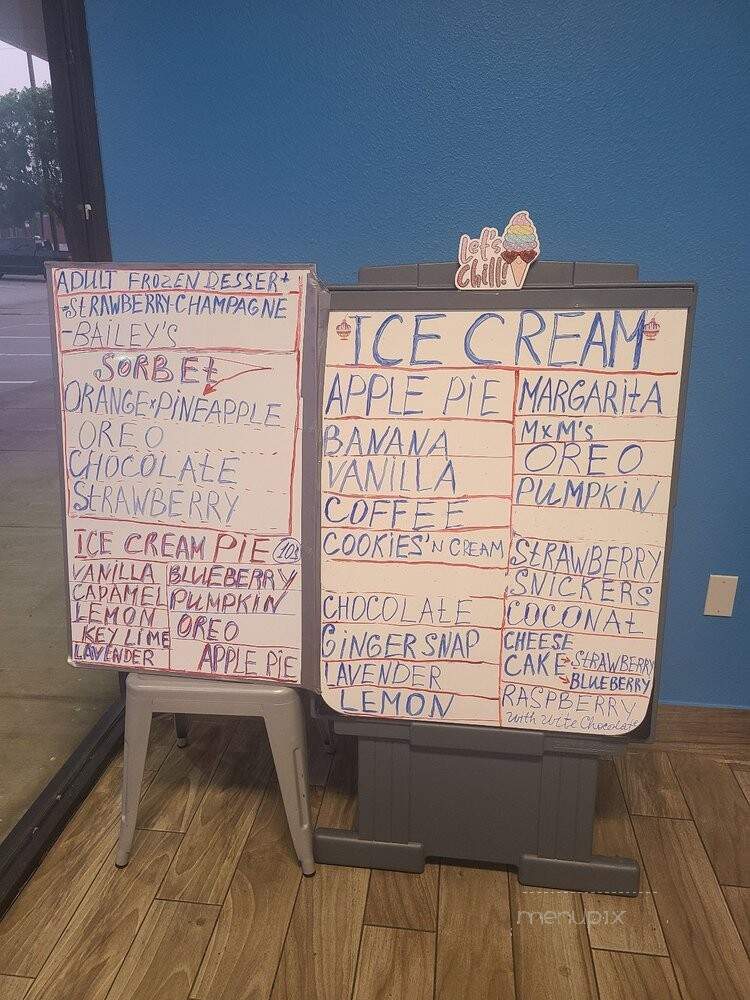 ADULT FROZEN DESSERT
- STRAWBERRY-CHAMPAGNE
- BAILEY'S
SORBET
ORANGE*PINEAPPLE
OREO
CHOCOLATE
STRAWBERRY
ICE CREAM PIE 10$
VANILLA
CAPAMEL
LEMON
KEY LIME
LAVENDER
BLUEBERRY
PUMPKIN
OREO
APPLE PIE
Let's
Chill!
ICE CREAM
APPLE PIE
BANANA
VANILLA
COFFEE
COOKIES'N CREAM
CHOCOLATE
GINGER SNAP
LAVENDER
LEMON
MARGARITA
MxM's
OREO
PUMPKIN
STRAWBERRY
SNICKERS
COCONAT
CHEESE
CAKE STRAWBERRY
BLUEBERRY
RASPBERRY
with Wite Chocolate
menupix